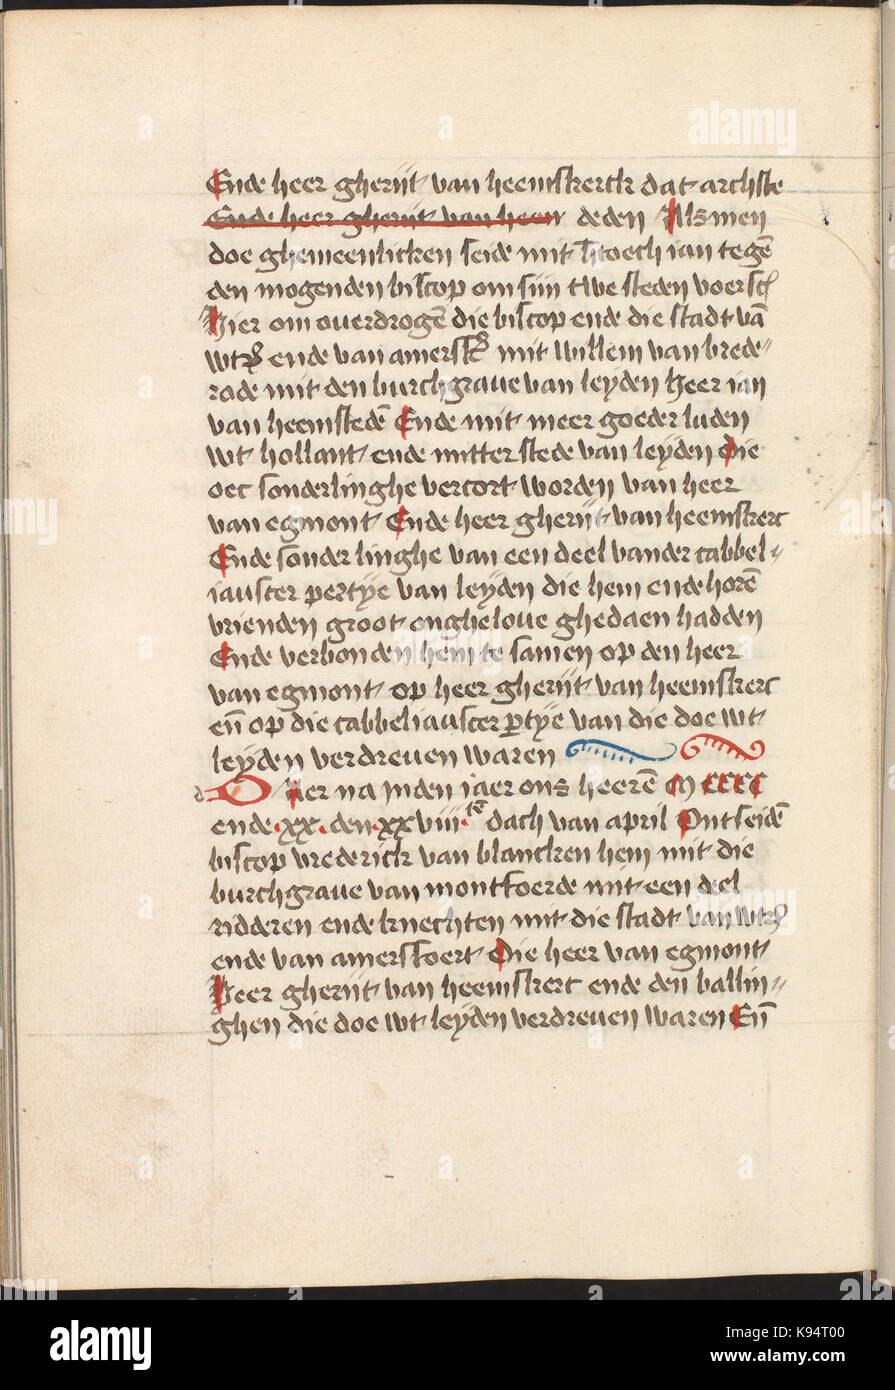 Ende heer gherijt van heemskerck dat archste
Ende heer gherijt van heer deden Alsmen
doe ghemeenlicken seide mit hertoech ian tegē
den mogenden biscop om sijn twe steden voersc
Hier om ouerdrogē die biscop ende die stadt vā
wtr ende van amersf mit willem van brede-
rode mit den burchgraue van leyden heer ian
van heemstedē Ende mit meer goeder luden
wt hollant ende mitter stede van leyden die
oec sonderlinghe vercort worden van heer
van egmont Ende heer gherijt van heemskerc
Ende sonderlinghe van een deel vander cabbel-
iauscer pertye van leyden die hem ende horē
vrienden groot ongheloue ghedaen hadden
Ende verbonden hem te samen op den heer
van egmont op heer gherijt van heemskerc
en̄ op die cabbeliauscer ptye van die doe wt
leyden verdreuen waren
d Aer na inden iaer ons heerē M CCCC
ende xx den xxviii tē dach van april Ontseidē
biscop vrederick van blancken hem mit die
burchgraue van montfoerde mit een deel
ridderen ende knechten mit die stadt van wtr
ende van amersfoert Die heer van egmont
Heer gherijt van heemskerc ende den ballin-
ghen die doe wt leyden verdreuen waren En̄
alamy
K94T00
www.alamy.com